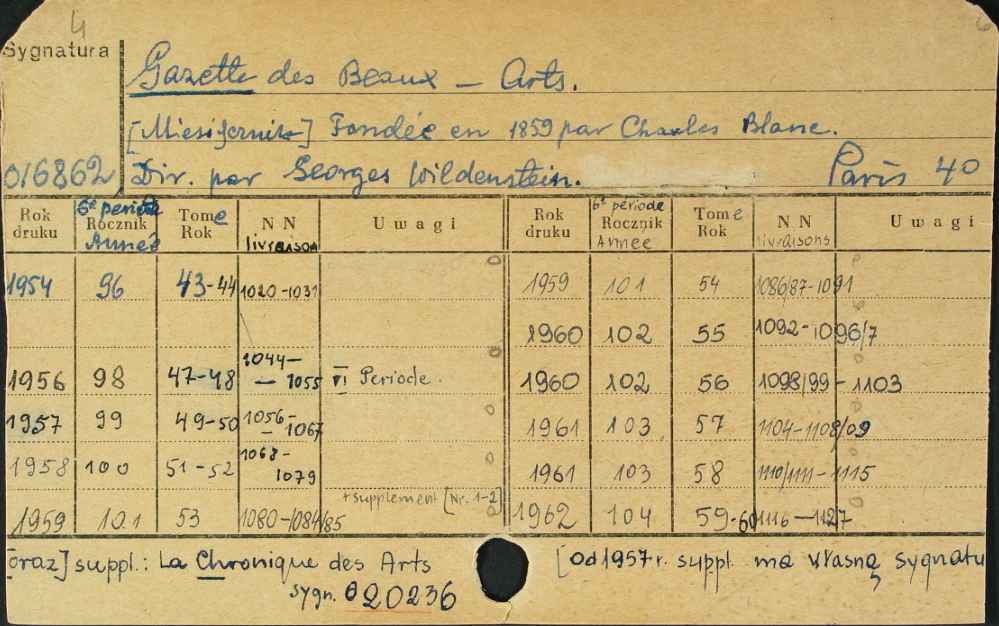 4
Sygnatura
Gazette des Beaux - Arts.
[Miesięcznik] Fondée en 1859 par Charles Blanc.
016862 Dir. par Georges Wildenstein. Paris 40
Rok druku 6e periode Rocznik Année Tome Rok NN livraison Uwagi Rok druku 6e periode Rocznik Annee Tome Rok NN livraisons Uwagi
1954 96 43-44 1020-1031 1959 101 54 1086/87-1091
1960 102 55 1092-1096/7
1956 98 47-48 1044-1055 VI Periode. 1960 102 56 1098/99-1103
1957 99 49-50 1056-1067 1961 103 57 1104-1108/09
1958 100 51-52 1068-1079 1961 103 58 1110/1111-1115
1959 101 53 1080-1084/85 + supplement [Nr. 1-2] 1962 104 59-60 1116-1127
[oraz] suppl.: La Chronique des Arts [od 1957 r. suppl. ma własną sygnatu
sygn. 020236